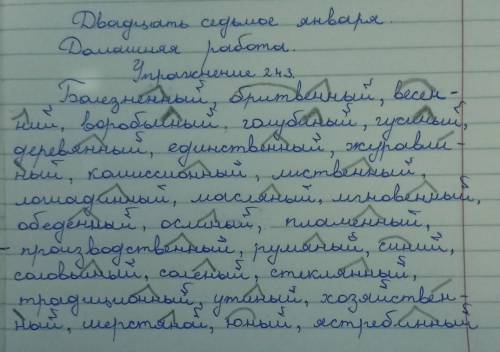 Двадцать седьмое января.
Домашняя работа.
Упражнение 243.
Болезненный, бритвенный, весен-
ний, воробьиный, голубиный, гусиный,
деревянный, единственный, журавли-
ный, комиссионный, лиственный,
лошадинный, масляный, мгновенный,
обеденный, ослиный, пламенный,
производственный, румяный, синий,
соловьиный, солёный, стеклянный,
традиционный, утиный, хозяйствен-
ный, шерстяной, юный, ястребинный